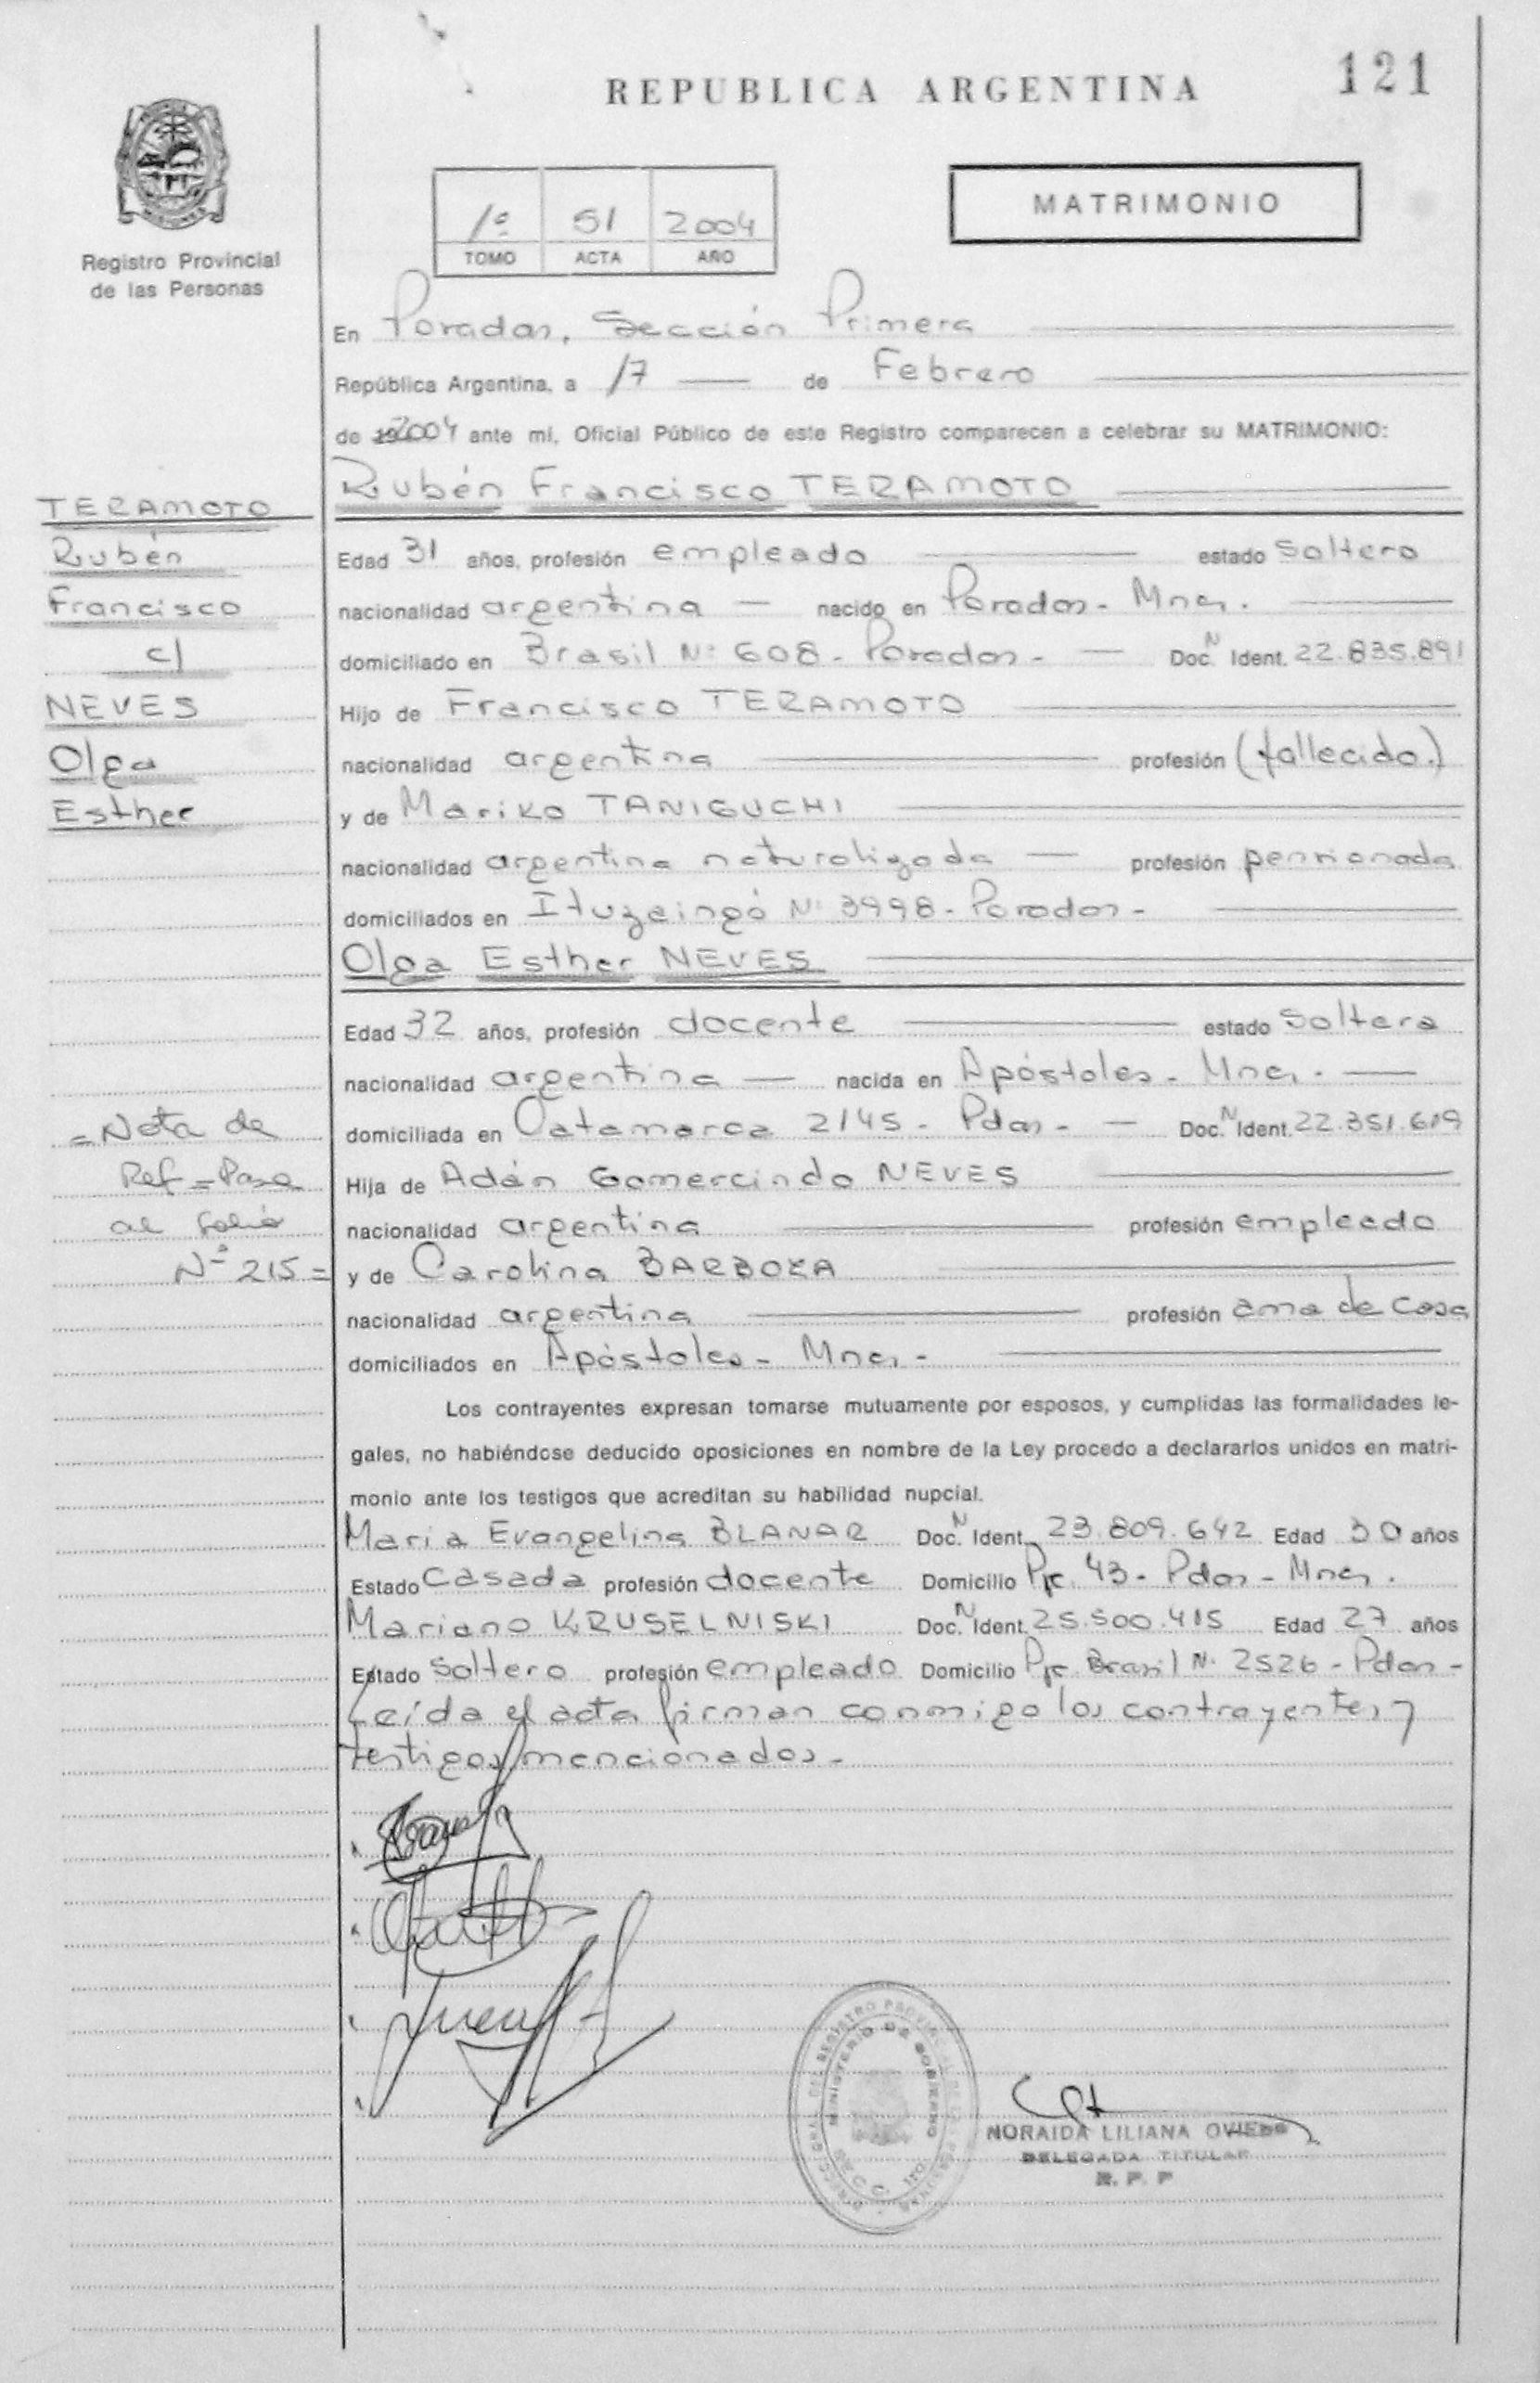 REPUBLICA ARGENTINA
121
MISIONES
Registro Provincial
de las Personas
1º 51 2004
TOMO ACTA AÑO
MATRIMONIO
En Posadas, Sección Primera
República Argentina, a 17 de Febrero
de 2004 ante mí, Oficial Público de este Registro comparecen a celebrar su MATRIMONIO:
Rubén Francisco TERAMOTO
TERAMOTO
Rubén
Francisco
c/
NEVES
Olga
Esther
Edad 31 años, profesión empleado estado soltero
nacionalidad argentina — nacido en Posadas - Mnes.
domiciliado en Brasil Nº 608 - Posadas - — Doc. N Ident. 22.835.891
Hijo de Francisco TERAMOTO
nacionalidad argentina profesión (fallecido.)
y de Mariko TANIGUCHI
nacionalidad argentina naturalizada — profesión pensionada
domiciliados en Ituzaingó Nº 3998 - Posadas -
Olga Esther NEVES
Edad 32 años, profesión docente estado soltera
nacionalidad argentina — nacida en Apóstoles - Mnes. —
domiciliada en Catamarca 2145 - Pdas - — Doc. N Ident. 22.351.619
Hija de Adán Gomercindo NEVES
nacionalidad argentina profesión empleado
y de Carolina BARBOZA
nacionalidad argentina profesión ama de casa
domiciliados en Apóstoles - Mnes -
= Nota de
Ref = Pase
al folio
Nº 215 =
Los contrayentes expresan tomarse mutuamente por esposos, y cumplidas las formalidades le-
gales, no habiéndose deducido oposiciones en nombre de la Ley procedo a declararlos unidos en matri-
monio ante los testigos que acreditan su habilidad nupcial.
Maria Evangelina BLANAR Doc. N Ident. 23.809.642 Edad 30 años
Estado casada profesión docente Domicilio Pje. 43 - Pdas - Mnes.
Mariano KRUSELNISKI Doc. N Ident. 25.500.415 Edad 27 años
Estado soltero profesión empleado Domicilio Pje Brasil Nº 2526 - Pdas -
Leída el acta firman conmigo los contrayentes y
testigos mencionados -
MINISTERIO DE GOBIERNO
NORAIDA LILIANA OVIEDO
DELEGADA TITULAR
R. P. P